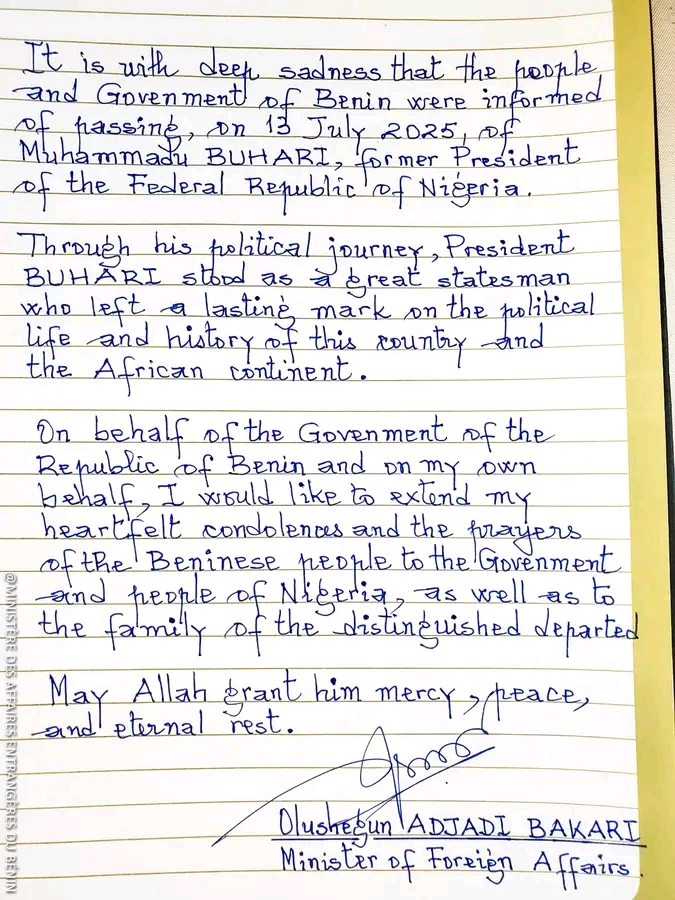 It is with deep sadness that the people
and Govenment of Benin were informed
of passing, on 13 July 2025, of
Muhammadu BUHARI, former President
of the Federal Republic of Nigeria.
Through his political journey, President
BUHARI stood as a great statesman
who left a lasting mark on the political
life and history of this country and
the African continent.
On behalf of the Govenment of the
Republic of Benin and on my own
behalf, I would like to extend my
heartfelt condolences and the prayers
of the Beninese people to the Govenment
and people of Nigeria, as well as to
the family of the distinguished departed
May Allah grant him mercy, peace,
and eternal rest.
Olushegun ADJADI BAKARI
Minister of Foreign Affairs.
@MINISTÈRE DES AFFAIRES ENTRANGÈRES DU BÉNIN